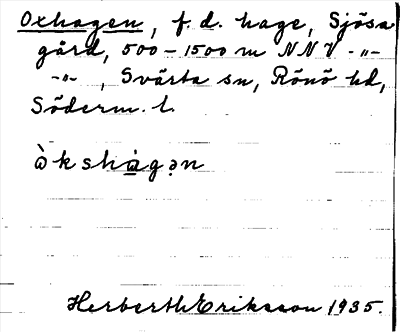 Oxhagen, f. d. hage, Sjösa
gård, 500-1500 m NNV -"-
-"-, Svärta sn, Rönö hd,
Söderm. l.
òkshàgən
Herberth Eriksson 1935.